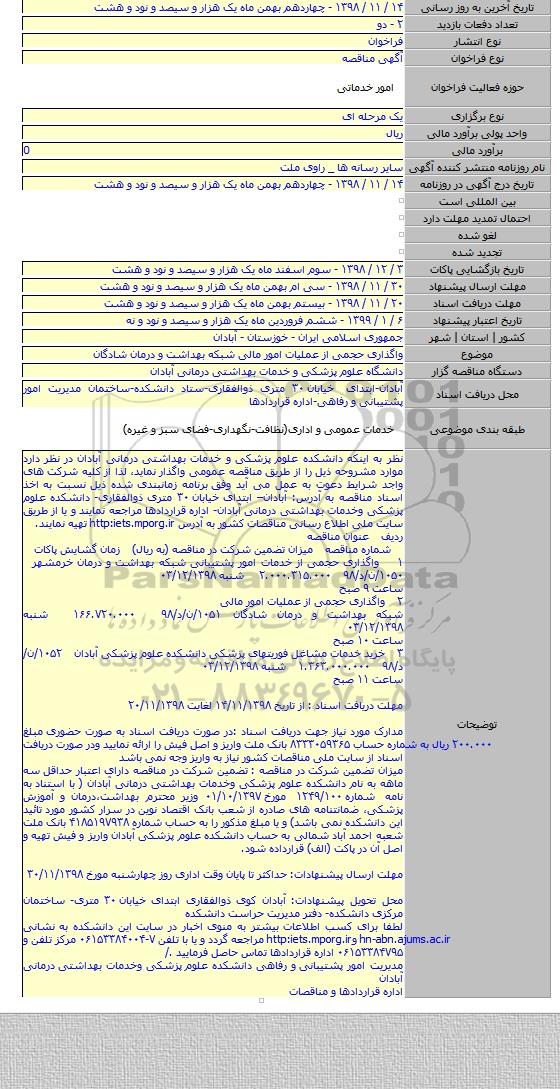 تاریخ آخرین به روز رسانی ۱۴ / ۱۱ / ۱۳۹۸ - چهاردهم بهمن ماه یک هزار و سیصد و نود و هشت
تعداد دفعات بازدید ۲ - دو
نوع انتشار فراخوان
نوع فراخوان آگهی مناقصه
حوزه فعالیت فراخوان امور خدماتی
نوع برگزاری یک مرحله ای
واحد پولی برآورد مالی ریال
برآورد مالی 0
نام روزنامه منتشر کننده آگهی سایر رسانه ها _ راوی ملت
تاریخ درج آگهی در روزنامه ۱۴ / ۱۱ / ۱۳۹۸ - چهاردهم بهمن ماه یک هزار و سیصد و نود و هشت
بین المللی است
احتمال تمدید مهلت دارد
لغو شده
تجدید شده
تاریخ بازگشایی پاکات ۳ / ۱۲ / ۱۳۹۸ - سوم اسفند ماه یک هزار و سیصد و نود و هشت
مهلت ارسال پیشنهاد ۳۰ / ۱۱ / ۱۳۹۸ - سی ام بهمن ماه یک هزار و سیصد و نود و هشت
مهلت دریافت اسناد ۲۰ / ۱۱ / ۱۳۹۸ - بیستم بهمن ماه یک هزار و سیصد و نود و هشت
تاریخ اعتبار پیشنهاد ۶ / ۱ / ۱۳۹۹ - ششم فروردین ماه یک هزار و سیصد و نود و نه
کشور | استان | شهر جمهوری اسلامی ایران - خوزستان - آبادان
موضوع واگذاری حجمی از عملیات امور مالی شبکه بهداشت و درمان شادگان
دستگاه مناقصه گزار دانشگاه علوم پزشکی و خدمات بهداشتی درمانی آبادان
محل دریافت اسناد آبادان-ابتدای خیابان ۳۰ متری ذوالفقاری-ستاد دانشکده-ساختمان مدیریت امور
پشتیبانی و رفاهی-اداره قراردادها
طبقه بندی موضوعی خدمات عمومی و اداری(نظافت-نگهداری-فضای سبز و غیره)
توضیحات
نظر به اینکه دانشکده علوم پزشکی و خدمات بهداشتی درمانی آبادان در نظر دارد
موارد مشروحه ذیل را از طریق مناقصه عمومی واگذار نماید، لذا از کلیه شرکت های
واجد شرایط دعوت به عمل می آید وفق برنامه زمانبندی شده ذیل نسبت به اخذ
اسناد مناقصه به آدرس: آبادان– ابتدای خیابان ۳۰ متری ذوالفقاری- دانشکده علوم
پزشکی وخدمات بهداشتی درمانی آبادان- اداره قراردادها مراجعه نمایند و یا از طریق
سایت ملی اطلاع رسانی مناقصات کشور به آدرس http:iets.mporg.ir تهیه نمایند.
ردیف عنوان مناقصه
شماره مناقصه میزان تضمین شرکت در مناقصه (به ریال) زمان گشایش پاکات
۱ واگذاری حجمی از خدمات امور پشتیبانی شبکه بهداشت و درمان خرمشهر
۱۰۵۰/ن/د/۹۸ ۲.۰۰۰.۳۱۵.۰۰۰ شنبه ۰۳/۱۲/۱۳۹۸
ساعت ۹ صبح
۲ واگذاری حجمی از عملیات امور مالی
شبکه بهداشت و درمان شادگان ۱۰۵۱/ن/د/۹۸ ۱۶۶.۷۲۰.۰۰۰ شنبه
۰۳/۱۲/۱۳۹۸
ساعت ۱۰ صبح
۳ خرید خدمات مشاغل فوریتهای پزشکی دانشکده علوم پزشکی آبادان ۱۰۵۲/ن/
د/۹۸ ۱.۳۶۳.۰۰۰.۰۰۰ شنبه ۰۳/۱۲/۱۳۹۸
ساعت ۱۱ صبح
مهلت دریافت اسناد : از تاریخ ۱۴/۱۱/۱۳۹۸ لغایت ۲۰/۱۱/۱۳۹۸
مدارک مورد نیاز جهت دریافت اسناد :در صورت دریافت اسناد به صورت حضوری مبلغ
۲۰۰.۰۰۰ ریال به شماره حساب ۸۳۳۳۰۵۹۳۶۵ بانک ملت واریز و اصل فیش را ارائه نمایید ودر صورت دریافت
اسناد از سایت ملی مناقصات کشور نیاز به واریز وجه نمی باشد
میزان تضمین شرکت در مناقصه : تضمین شرکت در مناقصه دارای اعتبار حداقل سه
ماهه به نام دانشکده علوم پزشکی وخدمات بهداشتی درمانی آبادان ( با استناد به
نامه شماره ۱۲۴۹/۱۰۰ مورخ ۰۱/۱۰/۱۳۹۷ وزیر محترم بهداشت،درمان و آموزش
پزشکی، ضمانتنامه های صادره از شعب بانک اقتصاد نوین در سرار کشور مورد تائید
این دانشکده نمی باشد) و یا مبلغ مذکور را به حساب شماره ۴۱۸۵۱۹۷۹۳۸ بانک ملت
شعبه احمد آباد شمالی به حساب دانشکده علوم پزشکی آبادان واریز و فیش تهیه و
اصل آن در پاکت (الف) قرارداده شود.
مهلت ارسال پیشنهادات: حداکثر تا پایان وقت اداری روز چهارشنبه مورخ ۳۰/۱۱/۱۳۹۸
محل تحویل پیشنهادات: آبادان کوی ذوالفقاری ابتدای خیابان ۳۰ متری- ساختمان
مرکزی دانشکده- دفتر مدیریت حراست دانشکده
لطفا برای کسب اطلاعات بیشتر به منوی اخبار در سایت این دانشکده به نشانی
http:iets.mporg.irو hn-abn.ajums.ac.ir مراجعه گردد و یا با تلفن ۷-۰۶۱۵۳۳۸۴۰۰۴ مرکز تلفن و
۰۶۱۵۳۳۸۴۷۹۵ اداره قراردادها تماس حاصل فرمایید ./
مدیریت امور پشتیبانی و رفاهی دانشکده علوم پزشکی وخدمات بهداشتی درمانی
آبادان
اداره قراردادها و مناقصات
ParsNamadData
۰۲۱-۸۸۳۴۹۶۷۰-۵